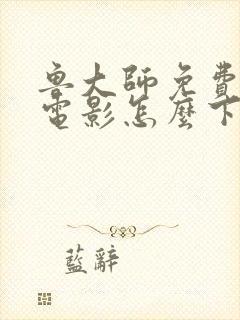 鲁大师免費
電影怎麼下
藍辭